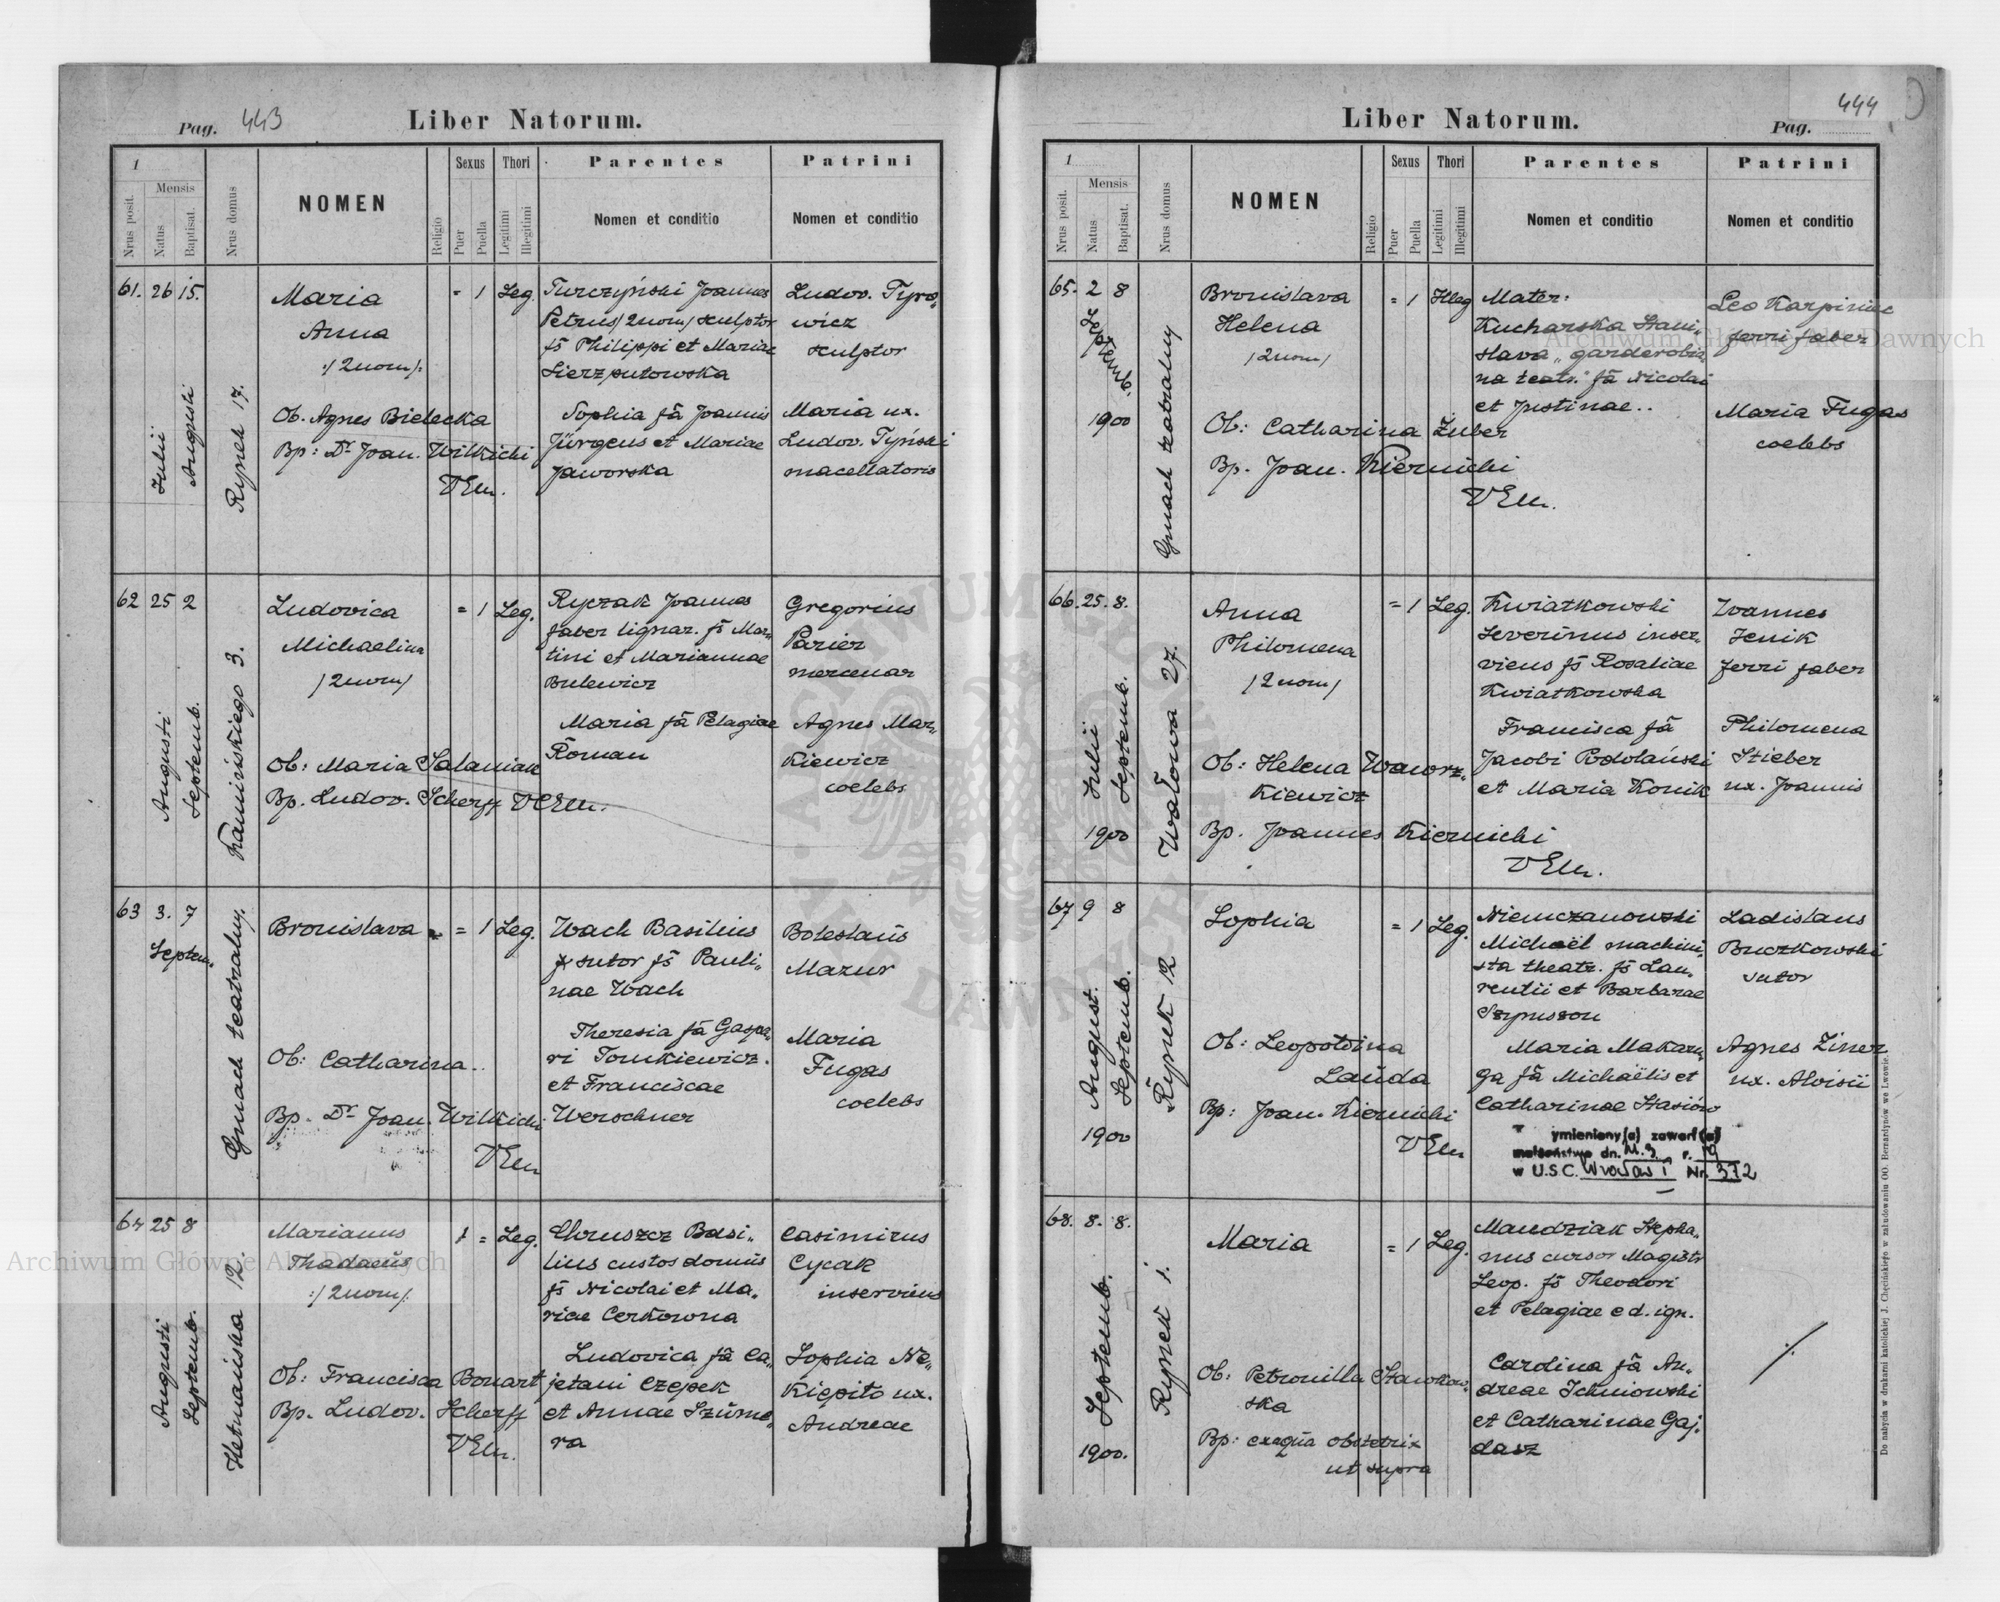 Pag. 443
Liber Natorum.
1
Mensis
Nrus posit.
Natus
Baptisat.
Nrus domus
NOMEN
Religio
Sexus
Puer
Puella
Thori
Legitimi
Illegitimi
Parentes
Nomen et conditio
Patrini
Nomen et conditio
61. 26 15.
Julii
Augusti
Rynek 17.
Maria
Anna
/2 nom/:
Ob. Agnes Bielecka
Bp: Dr Joan. Wilkicki
= 1 Leg.
Turczyński Joannes
Petrus /2 nom/ sculptor
fs Philippi et Mariae
Sierzputowska
Sophia fa Joannis
Jürgens et Mariae
Jaworska
Ludov. Tyro„
wicz
sculptor
Maria ux.
Ludov. Tyński
macellatoris
62 25 2
Augusti
Septemb.
Kamińskiego 3.
Ludovica
Michaelina
/2 nom/
Ob: Maria Salaniak
Bp. Ludov. Scherff
= 1 Leg.
Ryczak Joannes
faber lignar. fs Mar„
tini et Mariannae
Bulewicz
Maria fa Pelagiae
Roman
Gregorius
Parier
mercenar
Agnes Mar„
kiewicz
coelebs
63 3. 7
Septem.
Gmach teatralny.
Bronislava
Ob: Catharina..
Bp. Dr Joan. Wilkicki
= 1 Leg.
Wach Basilius
sutor fs Pauli„
nae Wach
Theresia fa Gaspa„
ri Tomkiewicz.
et Franciscae
Werschner
Boleslaus
Mazur
Maria
Fugas
coelebs
64 25 8
Augusti
Septemb.
Hetmańska 12.
Marianus
Thadaeus
:/2 nom/:
Ob: Francisca Bonart
Bp. Ludov. Scherff
1 = Leg.
Chruszcz Basi„
lius custos domus
fs Nicolai et Ma„
riae Cerkowna
Ludovica fa Ca„
jetani Czepek
et Annae Szume„
ra
Casimirus
Cycak
inserviens
Sophia Ne„
kiepito ux.
Andreae
Archiwum Główne Akt Dawnych
Liber Natorum.
Pag. 444
1
Mensis
Nrus posit.
Natus
Baptisat.
Nrus domus
NOMEN
Religio
Sexus
Puer
Puella
Thori
Legitimi
Illegitimi
Parentes
Nomen et conditio
Patrini
Nomen et conditio
65. 2 8
Septemb.
1900
Gmach teatralny
Bronislava
Helena
/2 nom/
Ob: Catharina Zuber
Bp. Joan. Kiernicki
= 1 Illeg
Mater:
Kucharska Stani„
slava „garderobia„
na teatr." fa Nicolai
et Justinae..
Leo Karpiniec
ferri faber
Maria Fugas
coelebs
Archiwum Główne Akt Dawnych
66. 25. 8.
Julii
Septemb.
1900
Wałowa 27.
Anna
Philomena
/2 nom/
Ob: Helena Wawrz„
kiewicz
Bp. Joannes Kiernicki
= 1 Leg.
Kwiatkowski
Severinus inser„
viens fs Rosaliae
Kwiatkowska
Francisca fa
Jacobi Podolański
et Maria Konik
Joannes
Jenik
ferri faber
Philomena
Stieber
ux. Joannis
67 9 8
August.
Septemb.
1900
Rynek 12
Sophia
Ob: Leopoldina
Lauda
Bp: Joan. Kiernicki
= 1 Leg.
Niemczanowski
Michaël machini„
sta theatr. fs Lau„
rentii et Barbarae
Szynsson
Maria Makaru„
ga fa Michaëlis et
Catharinae Stasiów
ymieniony(a) zawarł(a)
małżeństwo dn.
w U.S.C. Wrocław I Nr. 372
Ladislaus
Buczkowski
sutor
Agnes Ziner
ux. Aloisii
68. 8. 8.
Septemb.
1900.
Rynek 1.
Maria
Ob: Petronilla Stankow„
ska
Bp: ex aqua obstetrix
ut supra
= 1 Leg.
Mandziak Stepha„
nus cursor Magistr
Leop. fs Theodori
et Pelagiae e d. ign.
Carolina fa An„
dreae Ichniowski
et Catharinae Gaj„
dasz
Do nabycia w drukarni katolickiej J. Chęcińskiego w zabudowaniu OO. Bernardynów we Lwowie.